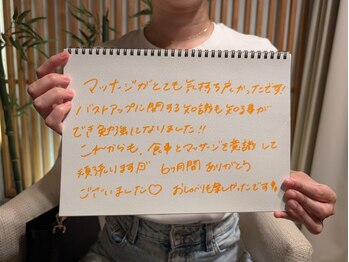 マッサージがとても気持ち良かったです!
バストアップに関する知識も知る事が
でき勉強になりました!!
これからも、食事とマッサージを意識して
頑張ります 6ヶ月間ありがとう
ございました♡ おしゃべりも楽しかったです